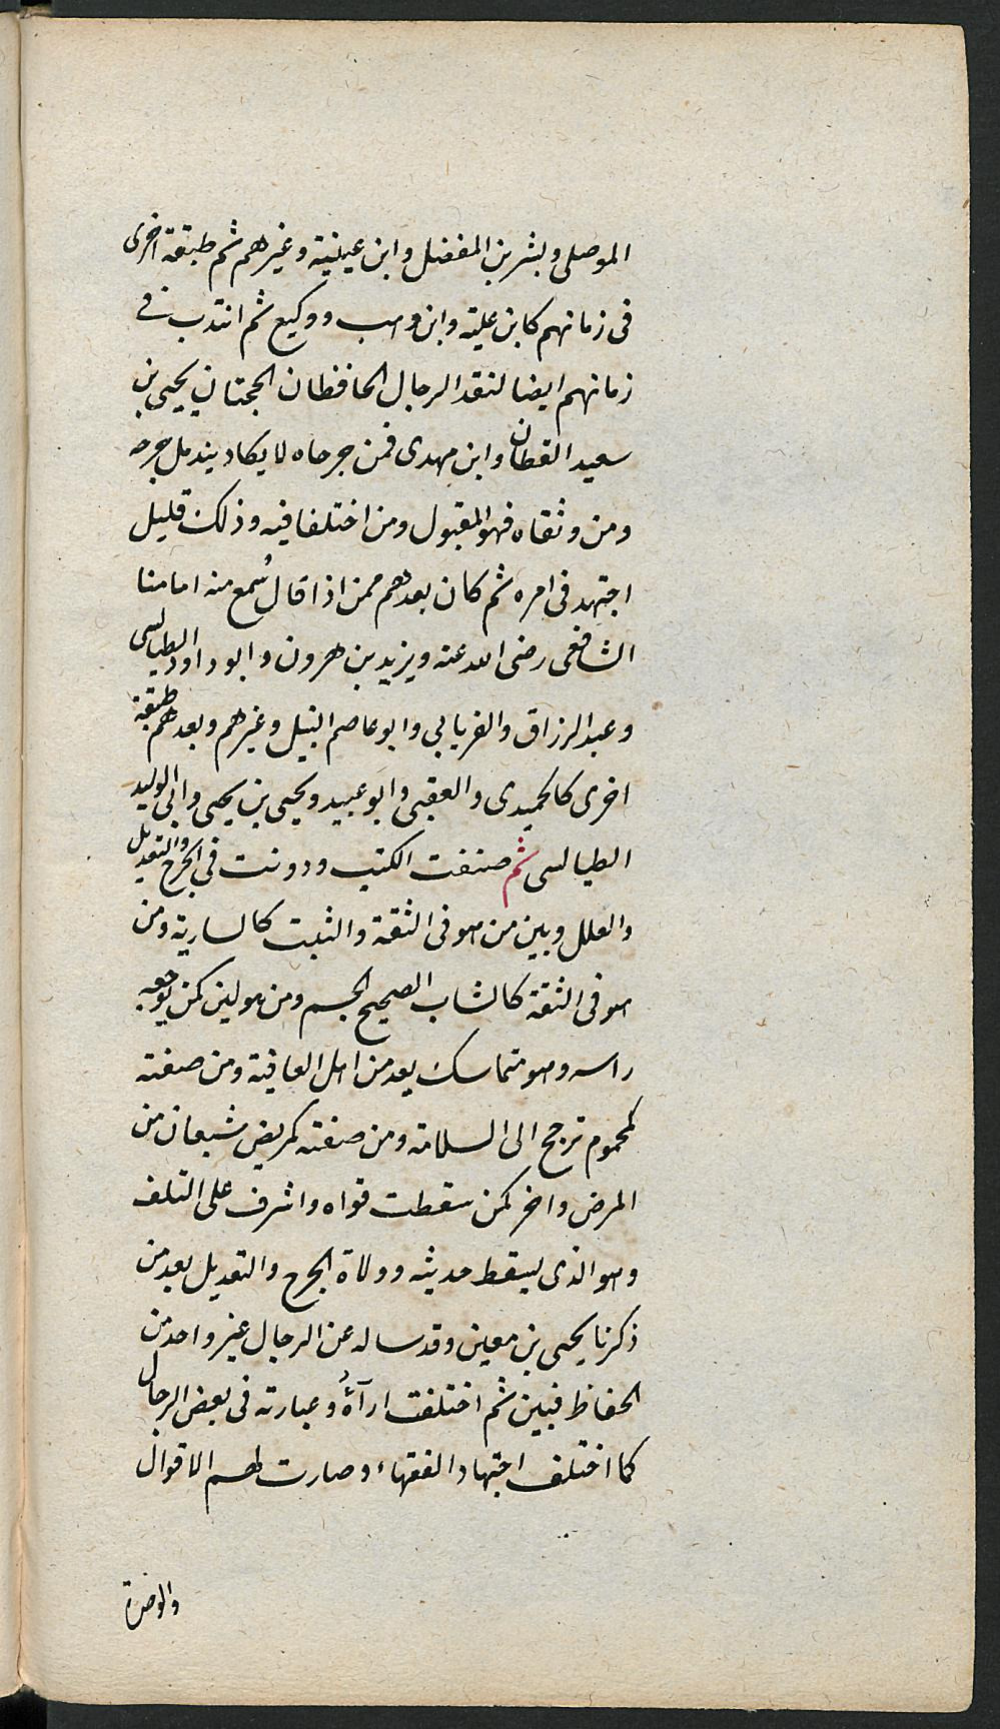 الموصلى وبشر بن المفضل وابن عيينة وغيرهم ثم طبقة اخرى
فى زمانهم كابن علية وابن وهب ووكيع ثم انتدب فى
زمانهم ايضا لنقد الرجال الحافظان الحجتان يحيى بن
سعيد القطان وابن مهدى فمن جرحاه لا يكاد يندمل جرحه
ومن وثقاه فهو المقبول ومن اختلفا فيه وذلك قليل
اجتهد فى امره ثم كان بعدهم ممن اذا قال سُمع منه امامنا
الشافعى رضى الله عنه ويزيد بن هرون وابو داود الطيالسى
وعبد الرزاق والفريابى وابو عاصم النبيل وغيرهم وبعدهم طبقة
اخرى كالحميدى والعقبى وابو عبيد ويحيى بن يحيى وابى الوليد
الطيالسى ثم صنفت الكتب ودونت فى الجرح والتعديل
والعلل وبين من هو فى الثقة والثبت كالسارية ومن
هو فى الثقة كالشاب الصحيح الجسم ومن هو لين كمن يوجعه
راسه وهو متماسك يعد من اهل العافية ومن صفته
كمحموم ترجح الى السلامة ومن صفته كمريض شبعان من
المرض واخر كمن سقطت قواه واشرف على التلف
وهو الذى يسقط حديثه وولاة الجرح والتعديل بعد من
ذكرنا يحيى بن معين وقد ساله عن الرجال غير واحد من
الحفاظ فبين ثم اختلفت ارآؤُه وعبارته فى بعض الرجال
كما اختلف اجتهاد الفقهاء وصارت لهم الاقوال